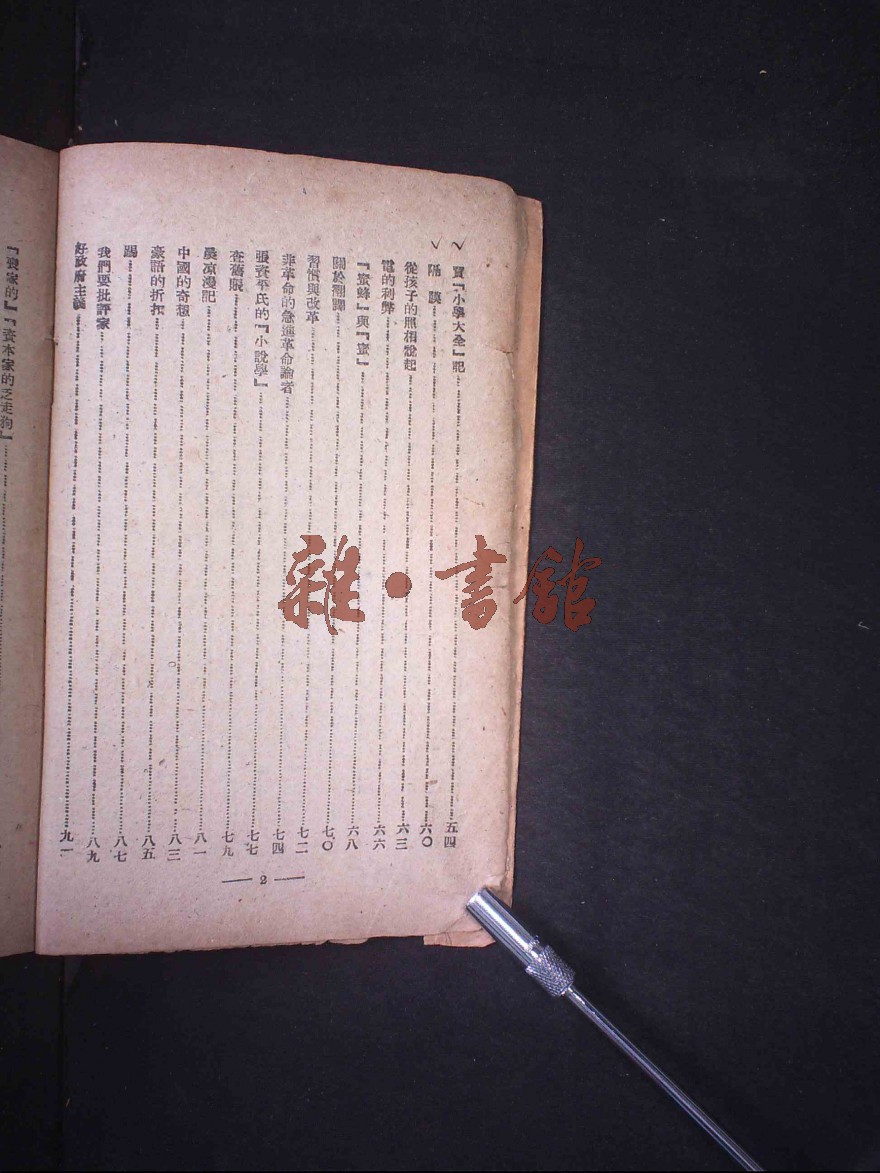 √ 買『小學大全』記……五四
√ 隔膜……六〇
從孩子的照相說起……六三
電的利弊……六六
『蜜蜂』與『蜜』……六八
關於翻譯……七〇
習慣與改革……七二
非革命的急進革命論者……七四
張資平氏的『小說學』……七七
查舊賬……七九
晨涼漫記……八一
中國的奇想……八三
豪語的折扣……八五
踢……八七
我們要批評家……八九
好政府主義……九一
— 2 —
『喪家的』『資本家的乏走狗』……
雜·書館